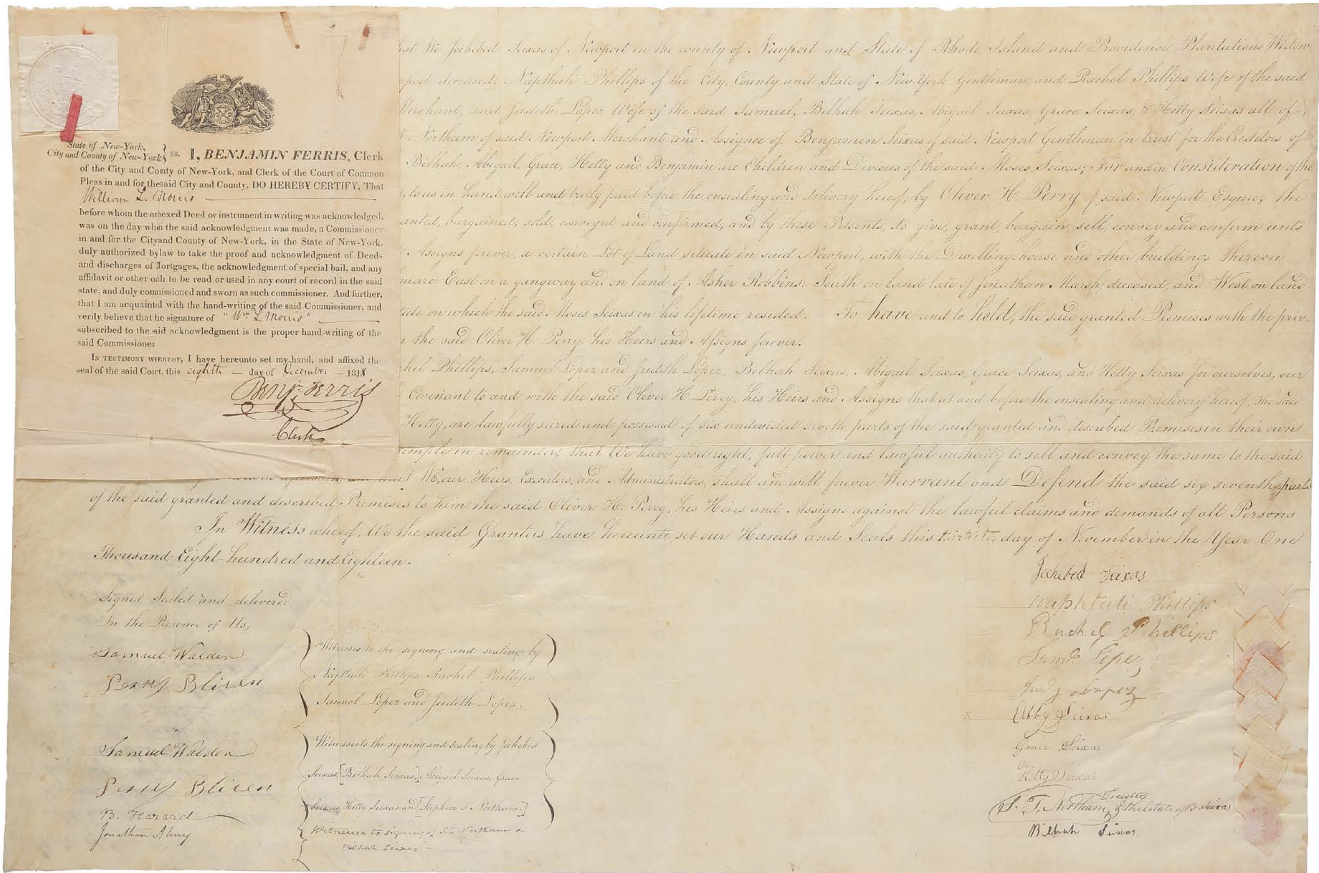 State of New-York,
City and County of New-York } ss. I, BENJAMIN FERRIS, Clerk
of the City and Conty of New-York, and Clerk of the Court of Common
Pleas in and for thesaid City and County, DO HEREBY CERTIFY, That
William L. Morris
before whom the annexed Deed or instrument in writing was acknowledged,
was on the day when the said acknowledgment was made, a Commissioner
in and for the Cityand County of New-York, in the State of New-York,
duly authorized bylaw to take the proof and acknowledgment of Deeds
and discharges of Mortgages, the acknowledgment of special bail, and any
affidavit or other oath to be read or used in any court of record in the said
state, and duly commissioned and sworn as such commissioner. And further,
that I am acquainted with the hand-writing of the said Commissioner, and
verily believe that he signature of "Wm L. Morris"
subscribed to the said acknowledgment is the proper hand-writing of the
said Commissioner.
IN TESTIMONY WHEREOF, I have hereunto set my hand, and affixed the
seal of the said Court, this eighth day of December 1818
Benj. Ferris
Clerk
that We Jochebed Seixas of Newport in the county of Newport and State of Rhode Island and Providence Plantations Widow
deceased, Napthali Phillips of the City, County and State of New-York Gentleman, and Rachel Phillips Wife of the said
Merchant, and Judith Lopez Wife of the said Samuel, Bilhah Seixas, Abigail Seixas, Grace Seixas, & Hetty Seixas all of
T. Northam of said Newport Merchant and Assignee of Benjamin Seixas of said Newport Gentleman in trust for the Creditors of
Bilhah, Abigail, Grace, Hetty and Benjamin are Children and Devisees of the said Moses Seixas; For and in Consideration of the
to us in hand well and truly paid before the ensealing and delivery hereof, by Oliver H. Perry of said Newport Esquire, the
granted, bargained, sold, conveyed and confirmed, and by these Presents, do give, grant, bargain, sell, convey and confirm unto
Assigns forever, a certain Lot of Land situate in said Newport, with the Dwelling-house and other buildings thereon
East on a gangway and on land of Asher Robbins, South on land late of Jonathan Marsh, deceased, and West on land
on which the said Moses Seixas in his lifetime resided. To have and to hold, the said granted Premises with the priv-
the said Oliver H. Perry his Heirs and Assigns forever.
Rachel Phillips, Samuel Lopez and Judith Lopez, Bilhah Seixas, Abigail Seixas, Grace Seixas, and Hetty Seixas for ourselves, our
Covenant to and with the said Oliver H. Perry, his Heirs and Assigns that at and before the ensealing and delivery hereof, the said
Hetty, are lawfully seized and possessed of six undivided seventh parts of the said granted and described Premises in their own
in remainder, that We have good right, full power and lawful authority to sell and convey the same to the said
that We, our Heirs, Executors, and Administrators, shall and will forever Warrant and Defend the said six sevenths parts
of the said granted and described Premises to him the said Oliver H. Perry, his Heirs and Assigns against the lawful claims and demands of all Persons
In Witness whereof, We the said Grantors have hereunto set our Hands and Seals this thirtieth day of November in the Year One
Thousand Eight-hundred and Eighteen.
Signed Sealed and delivered
In the Presence of Us,
Samuel Walden
Perry Bliven
Witnesses to the signing and sealing by
Napthali Phillips Rachel Phillips
Samuel Lopez and Judith Lopez,
Samuel Walden
Perry Bliven
B. Hazard
Jonathan Almy
Witnesses to the signing and sealing by Jochebed
Seixas, [Bilhah Seixas,] Abigail Seixas, Grace
Seixas, Hetty Seixas and [Stephen T. Northam.]
Witnesses to signing of S. T. Northam &
Bilhah Seixas
Jochebed Seixas
Naphtali Phillips
Rachel Phillips
Saml Lopez
Judy Lopez
Abby Seixas
Grace Seixas
Hetty Seixas
S. T. Northam, Trustee of the estate of B. Seixas
Bilhah Seixas